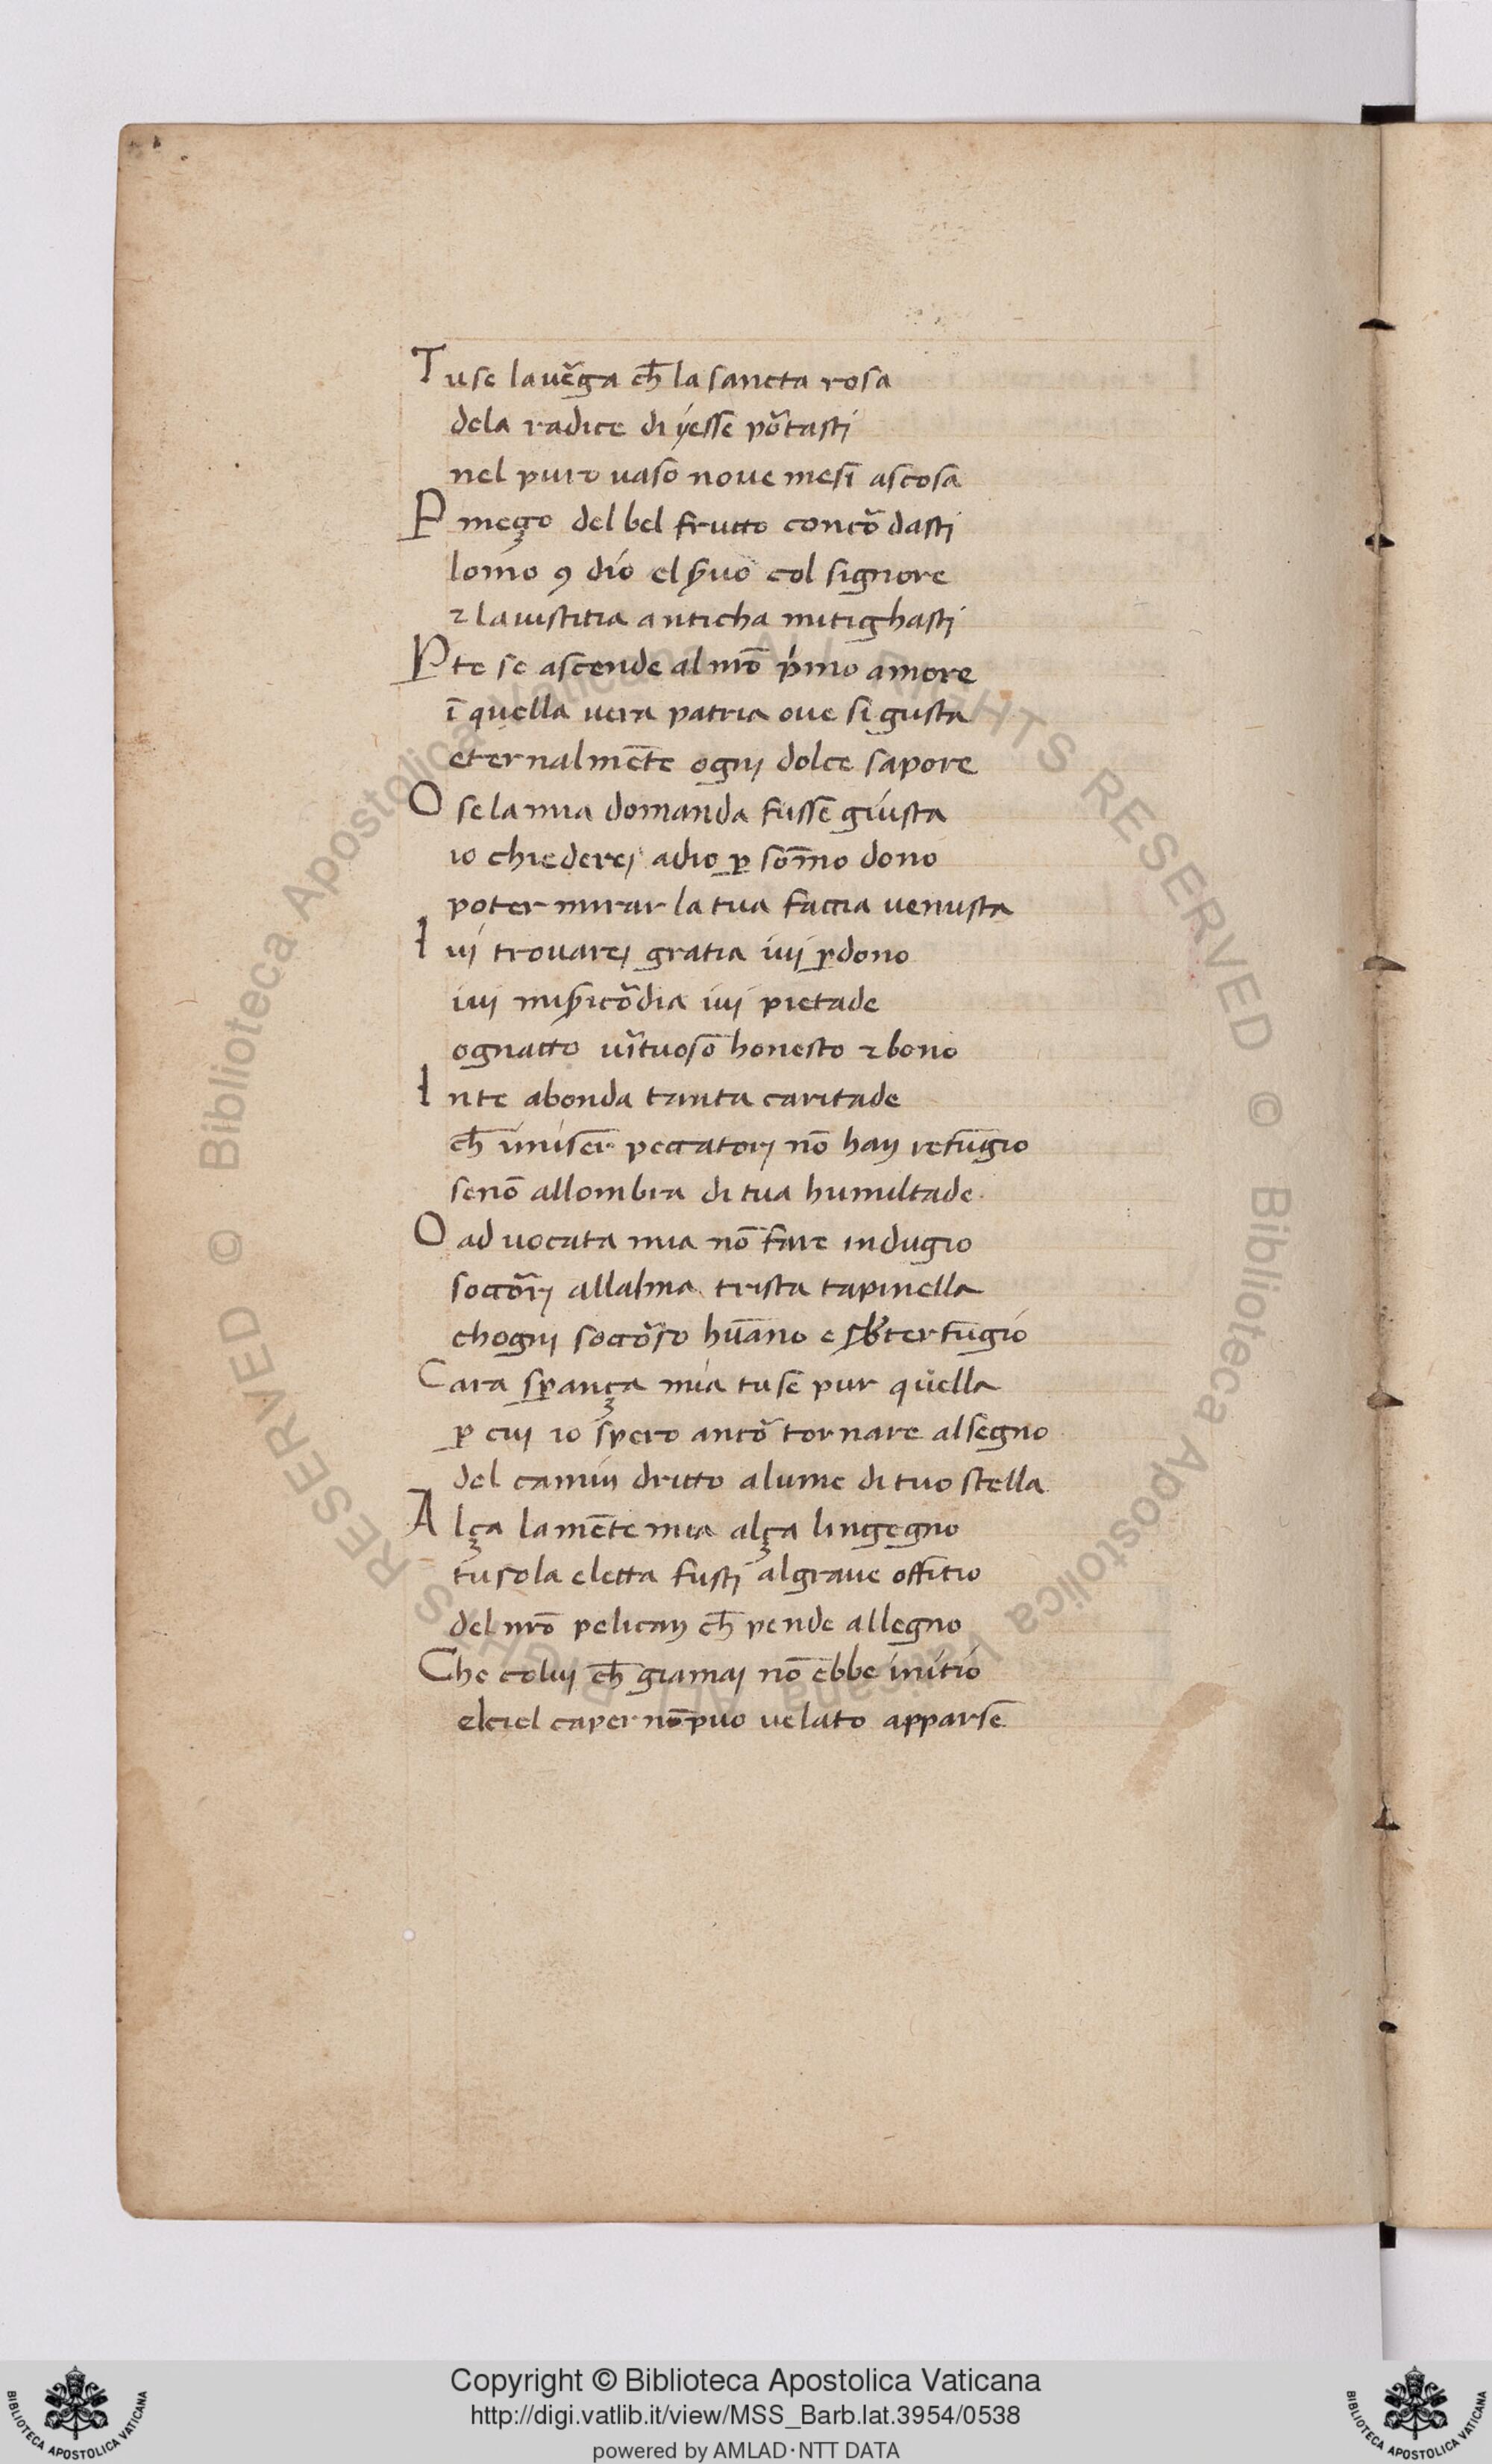 Tu se la uẽga ch̄ la sancta rosa
dela radice di yesse põtasti
nel puro uaso noue mesi ascosa
P̱ meço del bel frutto concõdasti
lomo ꝯ dio el ẜuo col signore
⁊ la iustitia anticha mitighasti
P̱ te se ascende al nr̄o p̓mo amore
ī quella uera patria oue si gusta
eternalmēte ognj dolce sapore
O se la mia domanda fusse giusta
io chiederej adio ꝑ som̄o dono
poter mirar la tua faccia uenusta
Iuj trouarej gratia iuj ꝑdono
iuj mis̃icõdia iuj pietade
ognatto uĩtuoso honesto ⁊ bono
In te abonda tanta caritade
ch̄ i miser peccatorj nō han refugio
se nō allombra di tua humiltade
O aduocata mia nō fare indugio
soccõrj allalma trista tapinella
chognj soccõso hūano e sbterfugio
Cara sꝑança mia tu se pur quella
ꝑ cuj io spero ancõ tornare al segno
del camin dritto alume di tuo stella
Alça la mēte mia alça lingegno
tu sola eletta fustj al graue offitio
del nr̄o pelican ch̄ pende allegno
Che coluj ch̄ giamaj nō ebbe initio
el ciel caper nō puo uelato apparse
Copyright © Biblioteca Apostolica Vaticana
http://digi.vatlib.it/view/MSS_Barb.lat.3954/0538
powered by AMLAD·NTT DATA
BIBLIOTECA APOSTOLICA VATICANA
BIBLIOTECA APOSTOLICA VATICANA
© Biblioteca Apostolica Vaticana ALL RIGHTS RESERVED © Biblioteca Apostolica Vaticana ALL RIGHTS RESERVED